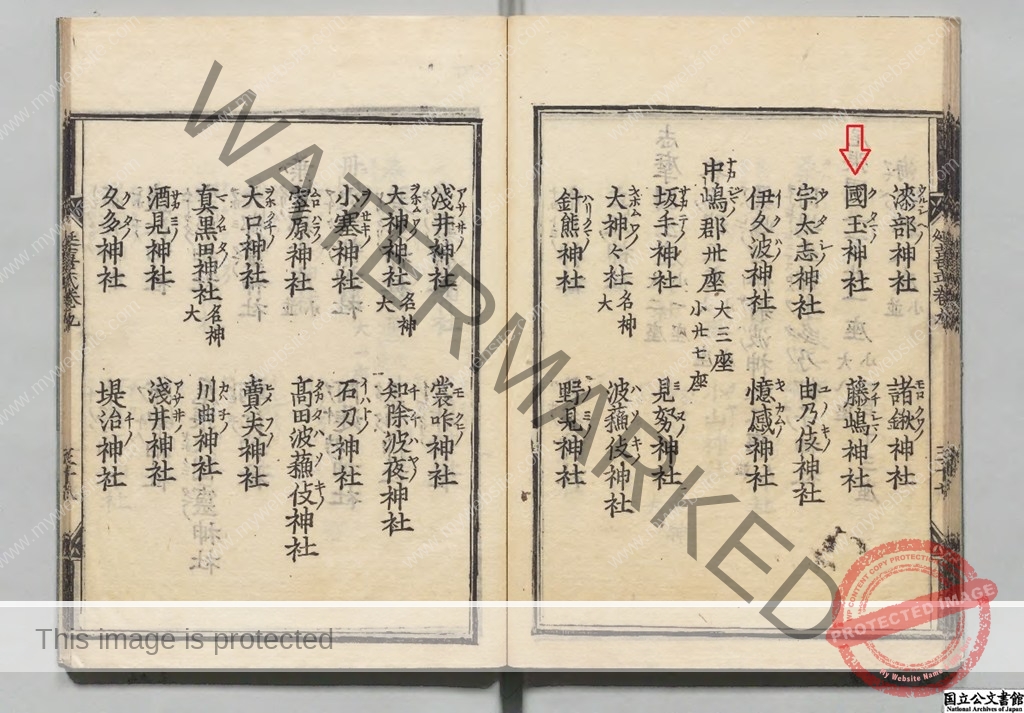 漆部神社 諸鍬神社
國玉神社 藤嶋神社
宇太志神社 由乃伎神社
伊久波神社 憶感神社
中嶋郡卅座 大三座 小廿七座
坂手神社 見努神社
大神々社 名神大 波蘓伎神社
針熊神社 野見神社
浅井神社 裳咋神社
大神神社 名神大 知除波夜神社
小塞神社 石刀神社
室原神社 髙田波蘓伎神社
大口神社 賣夫神社
真黒田神社 名神大 川曲神社
酒見神社 淺井神社
久多神社 堤治神社
延喜式卷九
WATERMARKED
This image is protected
CONTENT COPY PROTECTION
PROTECTED IMAGE
My Website Name
国立公文書館
National Archives of Japan